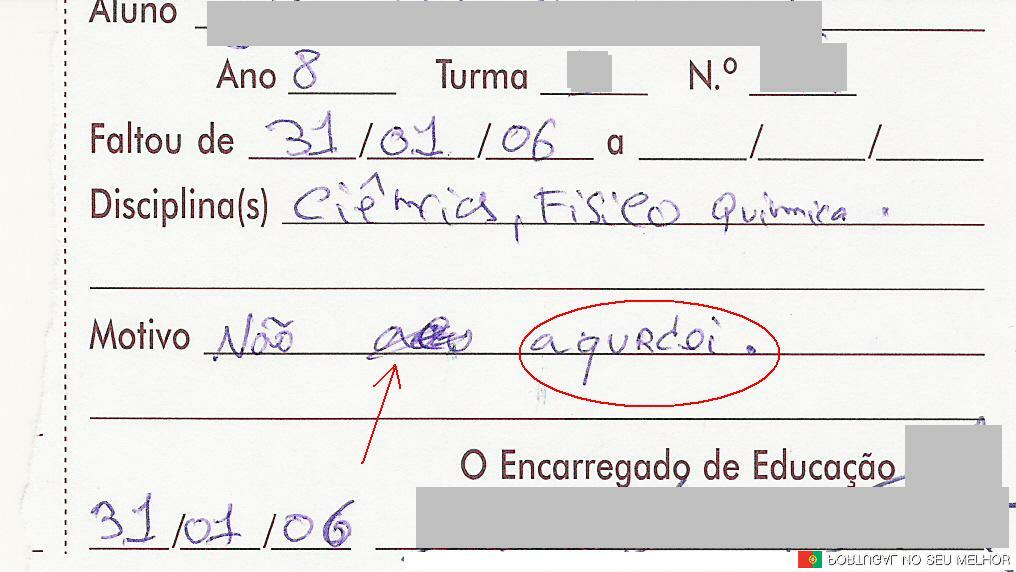 Aluno
Ano 8 Turma N.º
Faltou de 31/01/06 a / /
Disciplina(s) Ciêmcias, Fisico Quimica.
Motivo Não aqurdoi.
O Encarregado de Educação
31/01/06
PORTUGAL NO SEU MELHOR